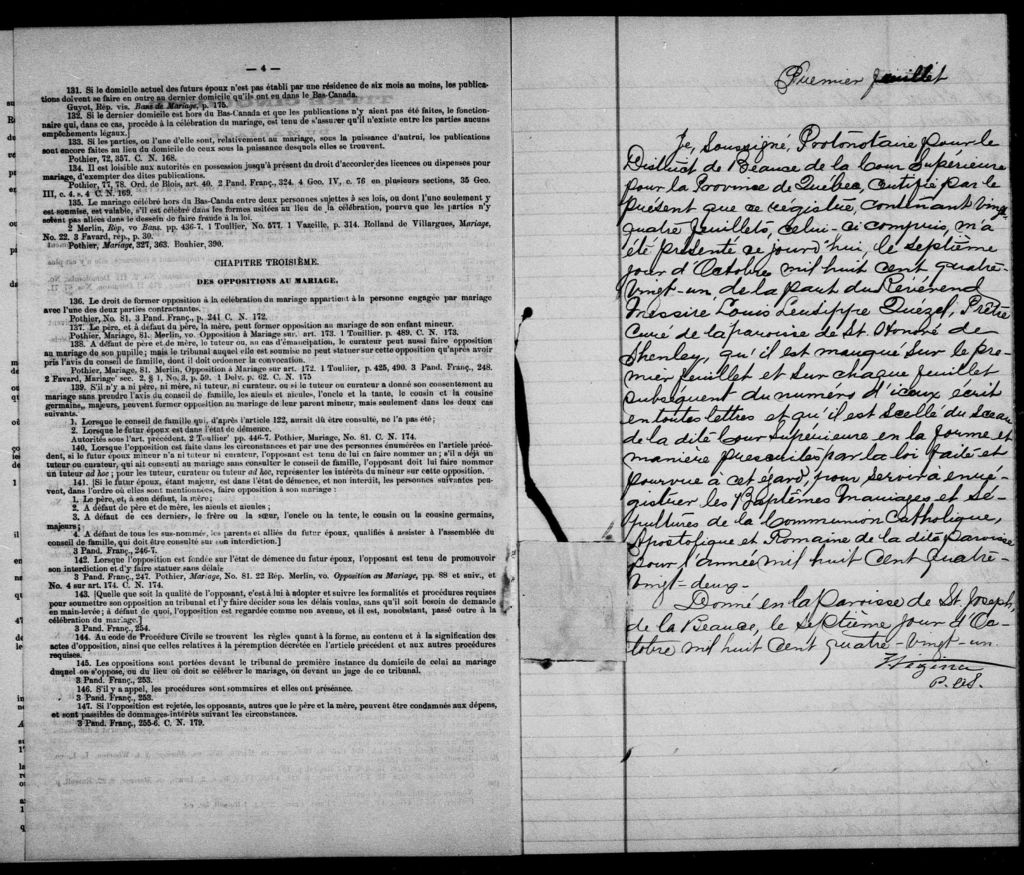 — 4 —
131. Si le domicile actuel des futurs époux n'est pas établi par une résidence de six mois au moins, les publica-
tions doivent se faire en outre au dernier domicile qu'ils ont eu dans le Bas-Canada.
Guyot, Rép. vis. Bans de Mariage, p. 175.
132. Si le dernier domicile est hors du Bas-Canada et que les publications n'y aient pas été faites, le fonction-
naire qui, dans ce cas, procède à la célébration du mariage, est tenu de s'assurer qu'il n'existe entre les parties aucuns
empêchements légaux.]
133. Si les parties, ou l'une d'elle sont, relativement au mariage, sous la puissance d'autrui, les publications
sont encore faites au lieu du domicile de ceux sous la puissance desquels elles se trouvent.
Pothier, 72, 357. C. N. 168.
134. Il est loisible aux autorités en possession jusqu'à présent du droit d'accorder des licences ou dispenses pour
mariage, d'exempter des dites publications.
Pothier, 77, 78. Ord. de Blois, art. 40. 2 Pand. Franç., 324. 4 Geo. IV, c. 76 en plusieurs sections, 35 Geo.
III, c. 4. s. 4 C. N. 169.
135. Le mariage célébré hors du Bas-Canda entre deux personnes sujettes à ses lois, ou dont l'une seulement y
est soumise, est valable, s'il est célébré dans les formes usitées au lieu de la célébration, pourvu que les parties n'y
soient pas allées dans le dessein de faire fraude à la loi.
2 Merlin, Rép, vo Bans. pp. 436-7. 1 Toullier, No. 577. 1 Vazeille, p. 314. Rolland de Villargues, Mariage,
No. 22. 3 Favard, rép., p. 30.
Pothier, Mariage, 327, 363. Bouhier, 390.
CHAPITRE TROISIÈME.
DES OPPOSITIONS AU MARIAGE.
136. Le droit de former opposition à la célébration du mariage appartient à la personne engagée par mariage
avec l'une des deux parties contractantes.
Pothier, No. 81. 3 Pand. Franç., p. 241 C. N. 172.
137. Le père, et à défaut du père, la mère, peut former opposition au mariage de son enfant mineur.
Pothier, Mariage, 81. Merlin, vo. Opposition à Mariage sur. art. 173. 1 Toullier. p. 489. C. N. 173.
138. A défaut de père et de mère, le tuteur ou, au cas d'émancipation, le curateur peut aussi faire opposition
au mariage de son pupille; mais le tribunal auquel elle est soumise ne peut statuer sur cette opposition qu'après avoir
pris l'avis du conseil de famille, dont il doit ordonner la convocation.
Pothier, Mariage, 81. Merlin, Opposition à Mariage sur art. 172. 1 Toulier, p. 425, 490. 3 Pand. Franç., 248.
2 Favard, Mariage' sec. 2, § 1, No. 3, p. 59. 1 Delv. p. 62. C. N. 175
139. S'il n'y a ni père, ni mère, ni tuteur, ni curateur, ou si le tuteur ou curateur a donné son consentement au
mariage sans prendre l'avis du conseil de famille, les aïeuls et aïeules, l'oncle et la tante, le cousin et la cousine
germains, majeurs, peuvent former opposition au mariage de leur parent mineur, mais seulement dans les deux cas
suivants.
1. Lorsque le conseil de famille qui, d'après l'article 122, aurait dû être consulté, ne l'a pas été;
2. Lorsque le futur époux est dans l'état de démence.
Autorités sous l'art. précédent. 2 Toullier' pp. 446-7. Pothier, Mariage, No. 81. C. N. 174.
140. Lorsque l'opposition est faite dans les circonstances et par une des personnes énumérées en l'article précé-
dent, si le futur époux mineur n'a ni tuteur ni curateur, l'opposant est tenu de lui en faire nommer un; s'il a déjà un
tuteur ou curateur, qui ait consenti au mariage sans consulter le conseil de famille, l'opposant doit lui faire nommer
un tuteur ad hoc; pour les tuteur, curateur ou tuteur ad hoc, représenter les intérêts du mineur sur cette opposition.
141. [Si le futur époux, étant majeur, est dans l'état de démence, et non interdit, les personnes suivantes peu-
vent, dans l'ordre où elles sont mentionnées, faire opposition à son mariage:
1. Le père, et, à son défaut, la mère;
2. A défaut de père et de mère, les aïeuls et aïeules;
3. A défaut de ces derniers, le frère ou la sœur, l'oncle ou la tante, le cousin ou la cousine germains,
majeurs;
4. A défaut de tous les sus-nommés, les parents et alliés du futur époux, qualifiés à assister à l'assemblée du
conseil de famille, qui doit être consulté sur son interdiction.]
3 Pand. Franç., 246-7.
142. Lorsque l'opposition est fondée sur l'état de démence du futur époux, l'opposant est tenu de promouvoir
son interdiction et d'y faire statuer sans délai.
3 Pand. Franç., 247. Pothier, Mariage, No. 81. 22 Rép. Merlin, vo. Opposition au Mariage, pp. 88 et suiv., et
No. 4 sur art. 174. C. N. 174.
143. [Quelle que soit la qualité de l'opposant, c'est à lui à adopter et suivre les formalités et procédures requises
pour soumettre son opposition au tribunal et l'y faire décider sous les délais voulus, sans qu'il soit besoin de demande
en main-levée; à défaut de quoi, l'opposition est regardée comme non avenue, et il est, nonobstant, passé outre à la
célébration du mariage.]
3 Pand. Franç., 254.
144. Au code de Procédure Civile se trouvent les règles quant à la forme, au contenu et à la signification des
actes d'opposition, ainsi que celles relatives à la péremption décrétée en l'article précédent et aux autres procédures
requises.
145. Les oppositions sont portées devant le tribunal de première instance du domicile de celui au mariage
duquel on s'oppose, ou du lieu où doit se célébrer le mariage, ou devant un juge de ce tribunal.
3 Pand. Franç., 253.
146. S'il y a appel, les procédures sont sommaires et elles ont préséance.
3 Pand. Franç., 253.
147. Si l'opposition est rejetée, les opposants, autres que le père et la mère, peuvent être condamnés aux dépens,
et sont passibles de dommages-intérêts suivant les circonstances.
3 Pand. Franç., 255-6. C. N. 179.
Premier feuillet
Je, Soussigné, Protonotaire pour le
District de Beauce de la Cour Supérieure
pour la Province de Québec, certifie par le
présent que ce régistre, contenant vingt
quatre feuillets, celui-ci compris, m'a
été présenté ce jourd'hui, le septième
jour d'Octobre mil huit cent quatre-
vingt-un de la part du Révérend
Messire Louis Leusippe Quézel, Prêtre
Curé de la paroisse de St. Honoré de
Shenley, qu'il est marqué sur le pre-
mier feuillet et sur chaque feuillet
subséquent du numéro d'iceux écrit
en toutes lettres et qu'il est scellé du sceau
de la dite Cour Supérieure en la forme et
manière prescrites par la loi faite et
pourvue à cet égard, pour servir à enré-
gistrer les Baptêmes Mariages et Sé-
pultures de la Communion Catholique,
Apostolique et Romaine de la dite paroisse
pour l'année mil huit Cent quatre-
vingt-deux.
Donné en la Paroisse de St. Joseph,
de la Beauce, le septième jour d'Oc-
tobre mil huit cent quatre-vingt-un.
P. C. S.